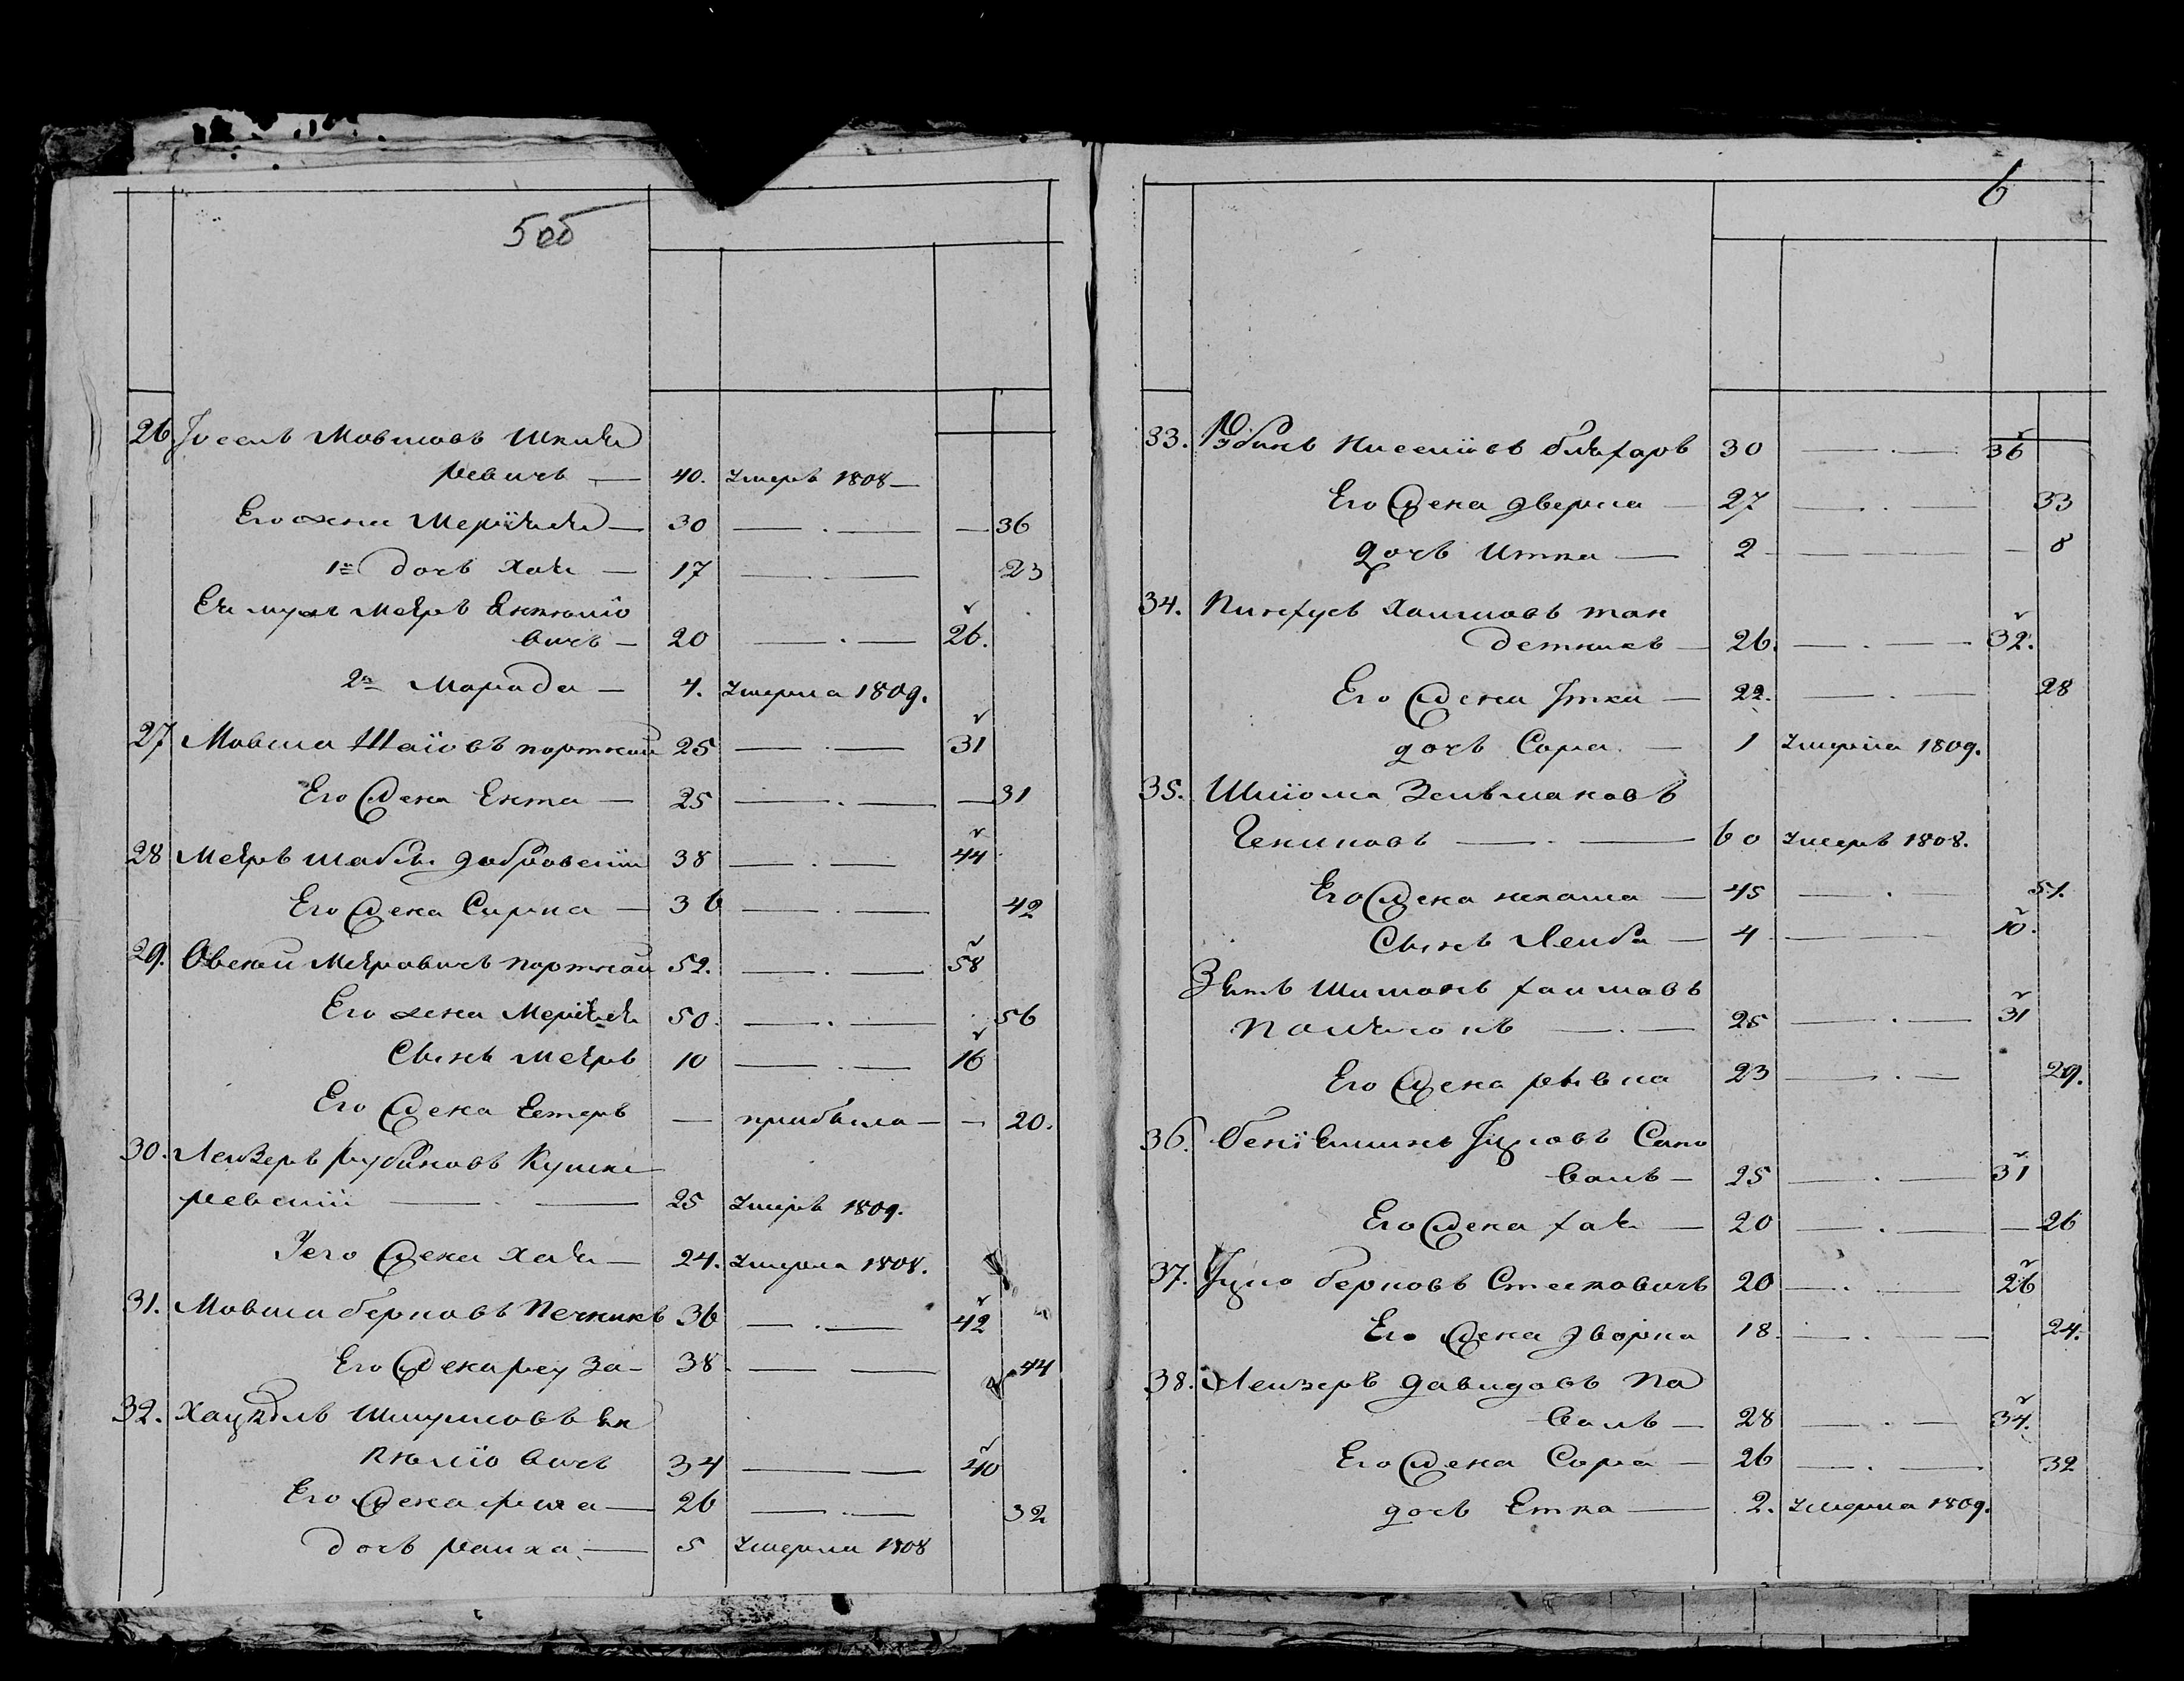 5 об
26 Іосель Мовшовъ Шкля
ревичъ — 40. Умеръ 1808 —
Его жена Меріяша — 30 — . — — 36
1я дочь Хая — 17 — . — 23
Ея мужъ Меяръ Якнюліо
вичъ — 20 — . — 26.
2я Марьяда — 4. Умерла 1809.
27 Мовша Шаіовъ портной 25 — . — 31
Его жена Ента — 25 — . — — 31
28 Меяръ шабсы добровскій 38 — . — 44
Его жена Сирка — 36 — . — 42
29. Овсей Меяровичъ портной 52. — . — 58
Его жена Меріяша 50. — . — 56
Сынъ Меяръ 10 — . — 16
Его жена Естеръ — прибыла — — 20.
30. Лейзеръ рубиновъ Кушне
ревскій — . — 25 Умеръ 1809.
Его жена Хая — 24. Умерла 1808.
31. Мовша берковъ Печникъ 36 — . — 42
Его жена реуза — 38. — — 44
32. Хацкель Шмуиловъ Як
нюліовичъ 34 — — 40
Его жена риша — 26 — . — 32
дочь раиха — 5 Умерла 1808
6
33. Рубинъ Ниселіовъ бляхаръ 30 — . — 36
Его жена дверка — 27 — . . — 33
дочь Итка — 2 — — — 8
34. Пинхусъ Хаимовъ тан
детникъ — 26. — . — 32.
Его жена Iтка — 22. — . — 28
дочь Сора — 1 Умерла 1809.
35. Шліома Зельмановъ
— . — 60 Умеръ 1808.
Его жена нехама — 45 — . — 51.
Сынъ Лейба — 4 — 10.
Зять Шимонъ хаимовъ
— . — 25 — . — 31
Его жена рывка 23 — . — 29.
36. Беніяминъ Іцковъ Сапо
валъ — 25 — . — 31
Его жена хая — 20 — . — — 26
37. Іцко берковъ Стесковичъ 20 — . . — 26
Его жена дворка 18. — . — 24.
38. Лейзеръ давидовъ Ко
валь — 28 — . — 34.
Его жена Сора — 26 — . — . 32
дочь Етка — 2. Умерла 1809.